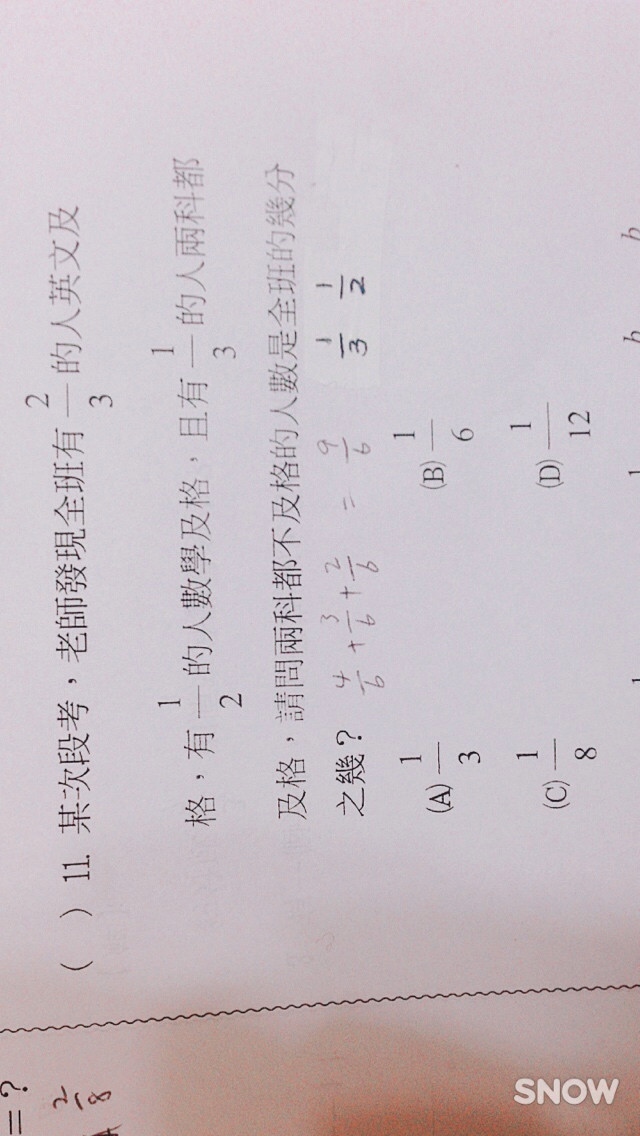 ( ) 11. 某次段考，老師發現全班有 2/3 的人英文及
格，有 1/2 的人數學及格，且有 1/3 的人兩科都
及格，請問兩科都不及格的人數是全班的幾分
之幾？ 4/6 + 3/6 + 2/6 = 9/6 1/3 1/2
(A) 1/3 (B) 1/6
(C) 1/8 (D) 1/12
= ?
SNOW